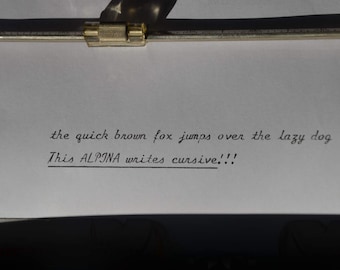 the quick brown fox jumps over the lazy dog
This ALPINA writes cursive!!!